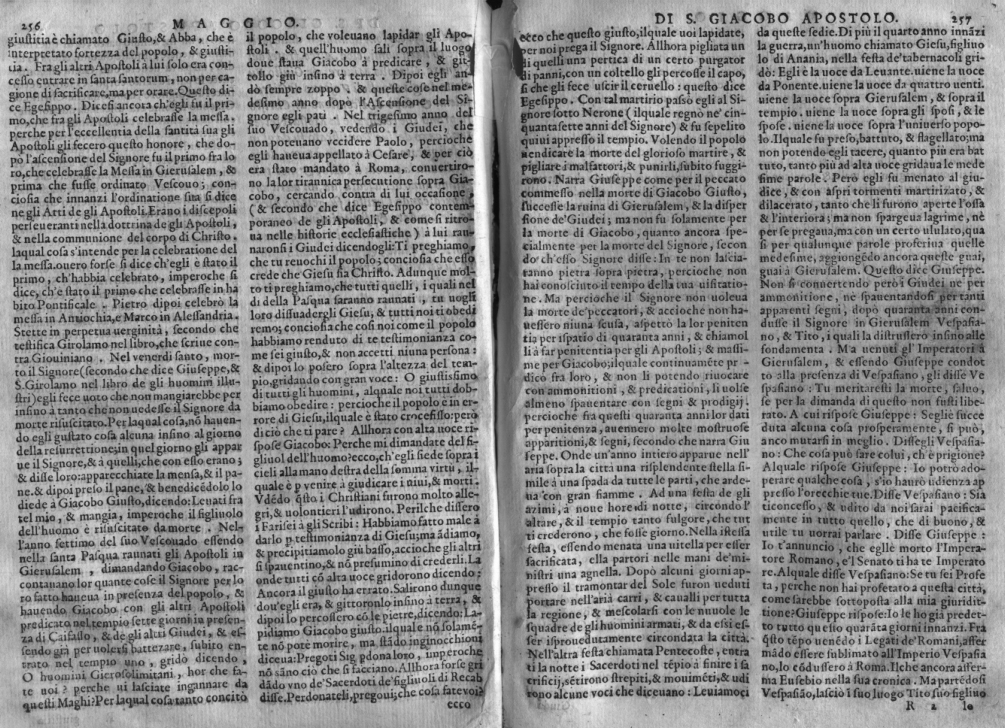 256
MAGGIO.
giustitia è chiamato Giusto, & Abba, che è
interpretato fortezza del popolo, & giusti-
tia. Fra gli altri Apostoli à lui solo era con-
cesso entrare in santa santorum, non per ca-
gione di sacrificare, ma per orare. Questo di-
ce Egesippo. Dicesi ancora ch'egli fu il pri-
mo, che fra gli Apostoli celebrasse la messa.
perche per l'eccellentia della santità sua gli
Apostoli gli fecero questo honore, che do-
pò l'ascensione del Signore fu il primo fra lo
ro, che celebrasse la Messa in Gierusalem, &
prima che fusse ordinato Vescouo; con-
ciosia che innanzi l'ordinatione sua si dice
ne gli Atti de gli Apostoli. Erano i discepoli
perseueranti nella dottrina de gli Apostoli,
& nella communione del corpo di Christo.
laqual cosa s'intende per la celebratione del
la messa. ouero forse si dice ch'egli è stato il
primo, ch'habbia celebrato, imperoche si
dice, ch'è stato il primo che celebrasse in ha
bito Pontificale. Pietro dipoi celebrò la
messa in Antiochia, e Marco in Alessandria.
Stette in perpetua uerginità, secondo che
testifica Girolamo nel libro, che scriue con-
tra Giouiniano. Nel venerdi santo, mor-
to il Signore (secondo che dice Giuseppe, &
S. Girolamo nel libro de gli huomini illu-
stri) egli fece uoto che non mangiarebbe per
insino à tanto che non uedesse il Signore da
morte risuscitato. Per laqual cosa, nõ hauen-
do egli gustato cosa alcuna insino al giorno
della resurrettione, in quel giorno gli appar
ue il Signore, & à quelli, che con esso erano;
& disse loro: apparecchiate la mensa, & il pa-
ne. & dipoi preso il pane, & benedicédolo lo
diede à Giacobo Giusto, dicendo: Leuati fra
tel mio, & mangia, imperoche il figliuolo
dell'huomo è risuscitato da morte. Nel-
l'anno settimo del suo Vescouado essendo
nella santa Pasqua raunati gli Apostoli in
Gierusalem, dimandando Giacobo, rac-
contauano lor quante cose il Signore per lo
ro fatto haueua in presenza del popolo, &
hauendo Giacobo con gli altri Apostoli
predicato nel tempio sette giorni in presen-
za di Caifasso, & de gli altri Giudei, & es-
sendo già per uolersi battezare, subito en-
trato nel tempio uno, gridò dicendo,
O huomini Gierosolimitani, hor che fa-
te uoi? perche ui lasciate ingannare da
questi Maghi? Per laqual cosa tanto concito
il popolo, che voleuano lapidar gli Apo-
stoli. & quell'huomo salì sopra il luogo
doue staua Giacobo à predicare, & git-
tollo giù insino à terra. Dipoi egli an-
dò sempre zoppo. & queste cose nel me-
desimo anno dopò l'Ascensione del Si-
gnore egli patì. Nel trigesimo anno del
suo Vescouado, vedendo i Giudei, che
non poteuano vccidere Paolo, percioche
egli haueua appellato à Cesare, & per ciò
era stato mandato à Roma, conuertiro-
no la lor tirannica persecutione sopra Gia-
cobo, cercando contra di lui occasione,
(& secondo che dice Egesippo contem-
poraneo de gli Apostoli, & come si ritro-
ua nelle historie ecclesiastiche) à lui rau-
nauonsi i Giudei dicendogli: Ti preghiamo,
che tu reuochi il popolo; conciosia che esso
crede che Giesu sia Christo. Adunque mol-
to ti preghiamo, che tutti quelli, i quali nel
dì della Pasqua saranno raunati, tu uogli
loro dissuader gli Giesu, & tutti noi ti obedi
remo; conciosia che così noi come il popolo
habbiamo renduto di te testimonianza co-
me sei giusto, & non accetti niuna persona:
& dipoi lo posero sopra l'altezza del tem-
pio, gridando con gran voce: O giustissimo
di tutti gli huomini, alquale noi tutti dob-
biamo obedire: percioche il popolo è in er-
rore di Giesu, ilquale è stato crocefisso: però
di ciò che ti pare? Allhora con alta uoce ri-
spose Giacobo: Perche mi dimandate del fi-
gliuol dell'huomo? ecco, ch'egli siede sopra i
cieli alla mano destra della somma virtù, il-
quale è p venire à giudicare i uiui, & morti.
Vdédo q̃sto i Christiani furono molto alle-
gri, & uolontieri l'udirono. Perilche dissero
i Farisei à gli Scribi: Habbiamo fatto male à
darlo p testimonianza di Giesu; ma ãdiamo,
& precipitiamolo giù basso, accioche gli altri
si spauentino, & nõ presumino di crederli. La
onde tutti cõ alta uoce gridorono dicendo:
Ancora il giusto ha errato. Salirono dunque
dou'egli era, & gittoronlo insino à terra, &
dipoi lo percossero cõ le pietre, dicendo: La-
pidiamo Giacobo giusto. ilquale nõ solamē-
te nõ potè morire, ma stādo inginocchioni
diceua: Pregoti Sig. pdona loro, imperoche
nõ sāno ciò che si facciano. Allhora forse gri
dādo vno de' Sacerdoti de' figliuoli di Recab
disse. Perdonateli, pregoui; che cosa fate voi?
ecco
DI S. GIACOBO APOSTOLO.
257
ecco che questo giusto, ilquale uoi lapidate,
per noi prega il Signore. Allhora pigliata un
di quelli una pertica di un certo purgator
di panni, con un coltello gli percosse il capo,
sì che gli fece uscir il ceruello: questo dice
Egesippo. Con tal martirio passò egli al Si-
gnore sotto Nerone (ilquale regnò ne' cin-
quantasette anni del Signore) & fu sepelito
quiui appresso il tempio. Volendo il popolo
uendicare la morte del glorioso martire, &
pigliare i malfattori, & punirli, subito fuggi-
rono. Narra Giuseppe come per il peccato
commesso nella morte di Giacobo Giusto,
successe la ruina di Gierusalem, & la disper
sione de' Giudei; ma non fu solamente per
la morte di Giacobo, quanto ancora spe-
cialmente per la morte del Signore, secon
do ch'esso Signore disse: In te non lascia-
ranno pietra sopra pietra, percioche non
hai conosciuto il tempo della tua uisitatio-
ne. Ma percioche il Signore non uoleua
la morte de' peccatori, & accioche non ha-
uessero niuna scusa, aspettò la lor peniten
tia per ispatio di quaranta anni, & chiamol
li à far penitentia per gli Apostoli; & massi-
me per Giacobo; ilquale continuamẽte pr-
dico fra loro, & non li potendo riuocare
con ammonitioni, & predicationi, li uolse
almeno spauentare con segni & prodigij.
percioche fra questi quaranta anni lor dati
per penitenza, auennero molte mostruose
apparitioni, & segni, secondo che narra Giu
seppe. Onde un'anno intiero apparue nell'
aria sopra la città una risplendente stella si-
mile à una spada da tutte le parti, che arde-
ua con gran fiamme. Ad una festa de gli
azimi, à noue hore di notte, circondò l'
altare, & il tempio tanto fulgore, che tut
ti crederono, che fosse giorno. Nella istessa
festa, essendo menata una uitella per esser
sacrificata, ella partorì nelle mani de' mi-
nistri una agnella. Dopò alcuni giorni ap-
presso il tramontar del Sole furon ueduti
portare nell'aria carri, & caualli per tutta
la regione, & mescolarsi con le nuuole le
squadre de gli huomini armati, & da essi es-
ser isproueduta mente circondata la città.
Nell'altra festa chiamata Pentecoste, entra
ti la notte i Sacerdoti nel tẽpio à finire i sa
crificij, sẽtirono strepiti, & mouimẽti, & udi
rono alcune voci che diceuano: Leuiamoci
da queste sedie. Di più il quarto anno innãzi
la guerra, un'huomo chiamato Giesu, figliuo
lo di Anania, nella festa de' tabernacoli gri-
dò: Egli è la uoce da Leuante. uiene la uoce
da Ponente. uiene la uoce da quattro uenti.
uiene la uoce sopra Gierusalem, & sopra il
tempio. uiene la uoce sopra gli sposi, & le
spose. uiene la uoce sopra l'uniuerso popo-
lo. Ilquale fu preso, battuto, & flagellato: ma
non potendo egli tacere, quanto più era bat
tuto, tanto più ad alta uoce gridaua le mede
sime parole. Però egli fu menato al giu-
dice, & con aspri tormenti martirizato, &
dilacerato, tanto che li furono aperte l'ossa
& l'interiora; ma non spargeua lagrime, nè
per se pregaua, ma con un certo ululato, qua
si per qualunque parole proferiua quelle
medesime, aggiongẽdo ancora queste guai,
guai à Gierusalem. Questo dice Giuseppe.
Non si conuertendo però i Giudei ne per
ammonitione, ne spauentandosi per tanti
apparenti segni, dopò quaranta anni con-
dusse il Signore in Gierusalem Vespasia-
no, & Tito, i quali la distrussero insino alle
fondamenta. Ma uenuti gl'Imperatori à
Gierusalem, & essendo Giuseppe condot
to alla presenza di Vespasiano, gli disse Ve
spasiano: Tu meritaresti la morte, saluo,
se per la dimanda di questo non fusti libe-
rato. A cui rispose Giuseppe: Se gliè succe
duta alcuna cosa prosperamente, si può,
anco mutarsi in meglio. Dissegli Vespasia-
no: Che cosa può fare colui, ch'è prigione?
Alquale rispose Giuseppe: Io potrò ado-
perare qualche cosa, s'io haurò udienza ap
presso l'orecchie tue. Disse Vespasiano: Sia
ti concesso, & udito da noi sarai pacifica-
mente in tutto quello, che di buono, &
utile tu uorrai parlare. Disse Giuseppe:
Io t'annuncio, che eglie morto l'Impera-
tore Romano, e'l Senato ti ha te Imperato
re. Alquale disse Vespasiano: Se tu sei Profe
ta, perche non hai profetato a questa città,
come sarebbe sottoposta alla mia giuridit-
tione? Giuseppe rispose: Io le ho già predet-
to tutto questo quarãta giorni innanzi. Fra
q̃sto tẽpo uenẽdo i Legati de' Romani, affer
mãdo essere sublimato all'Imperio Vespasia
no, lo cõdussero à Roma. Ilche ancora affer-
ma Eusebio nella sua cronica. Ma partẽdosi
Vespasião, lasciò ĩ suo luogo Tito suo figliuo
R 2 lo